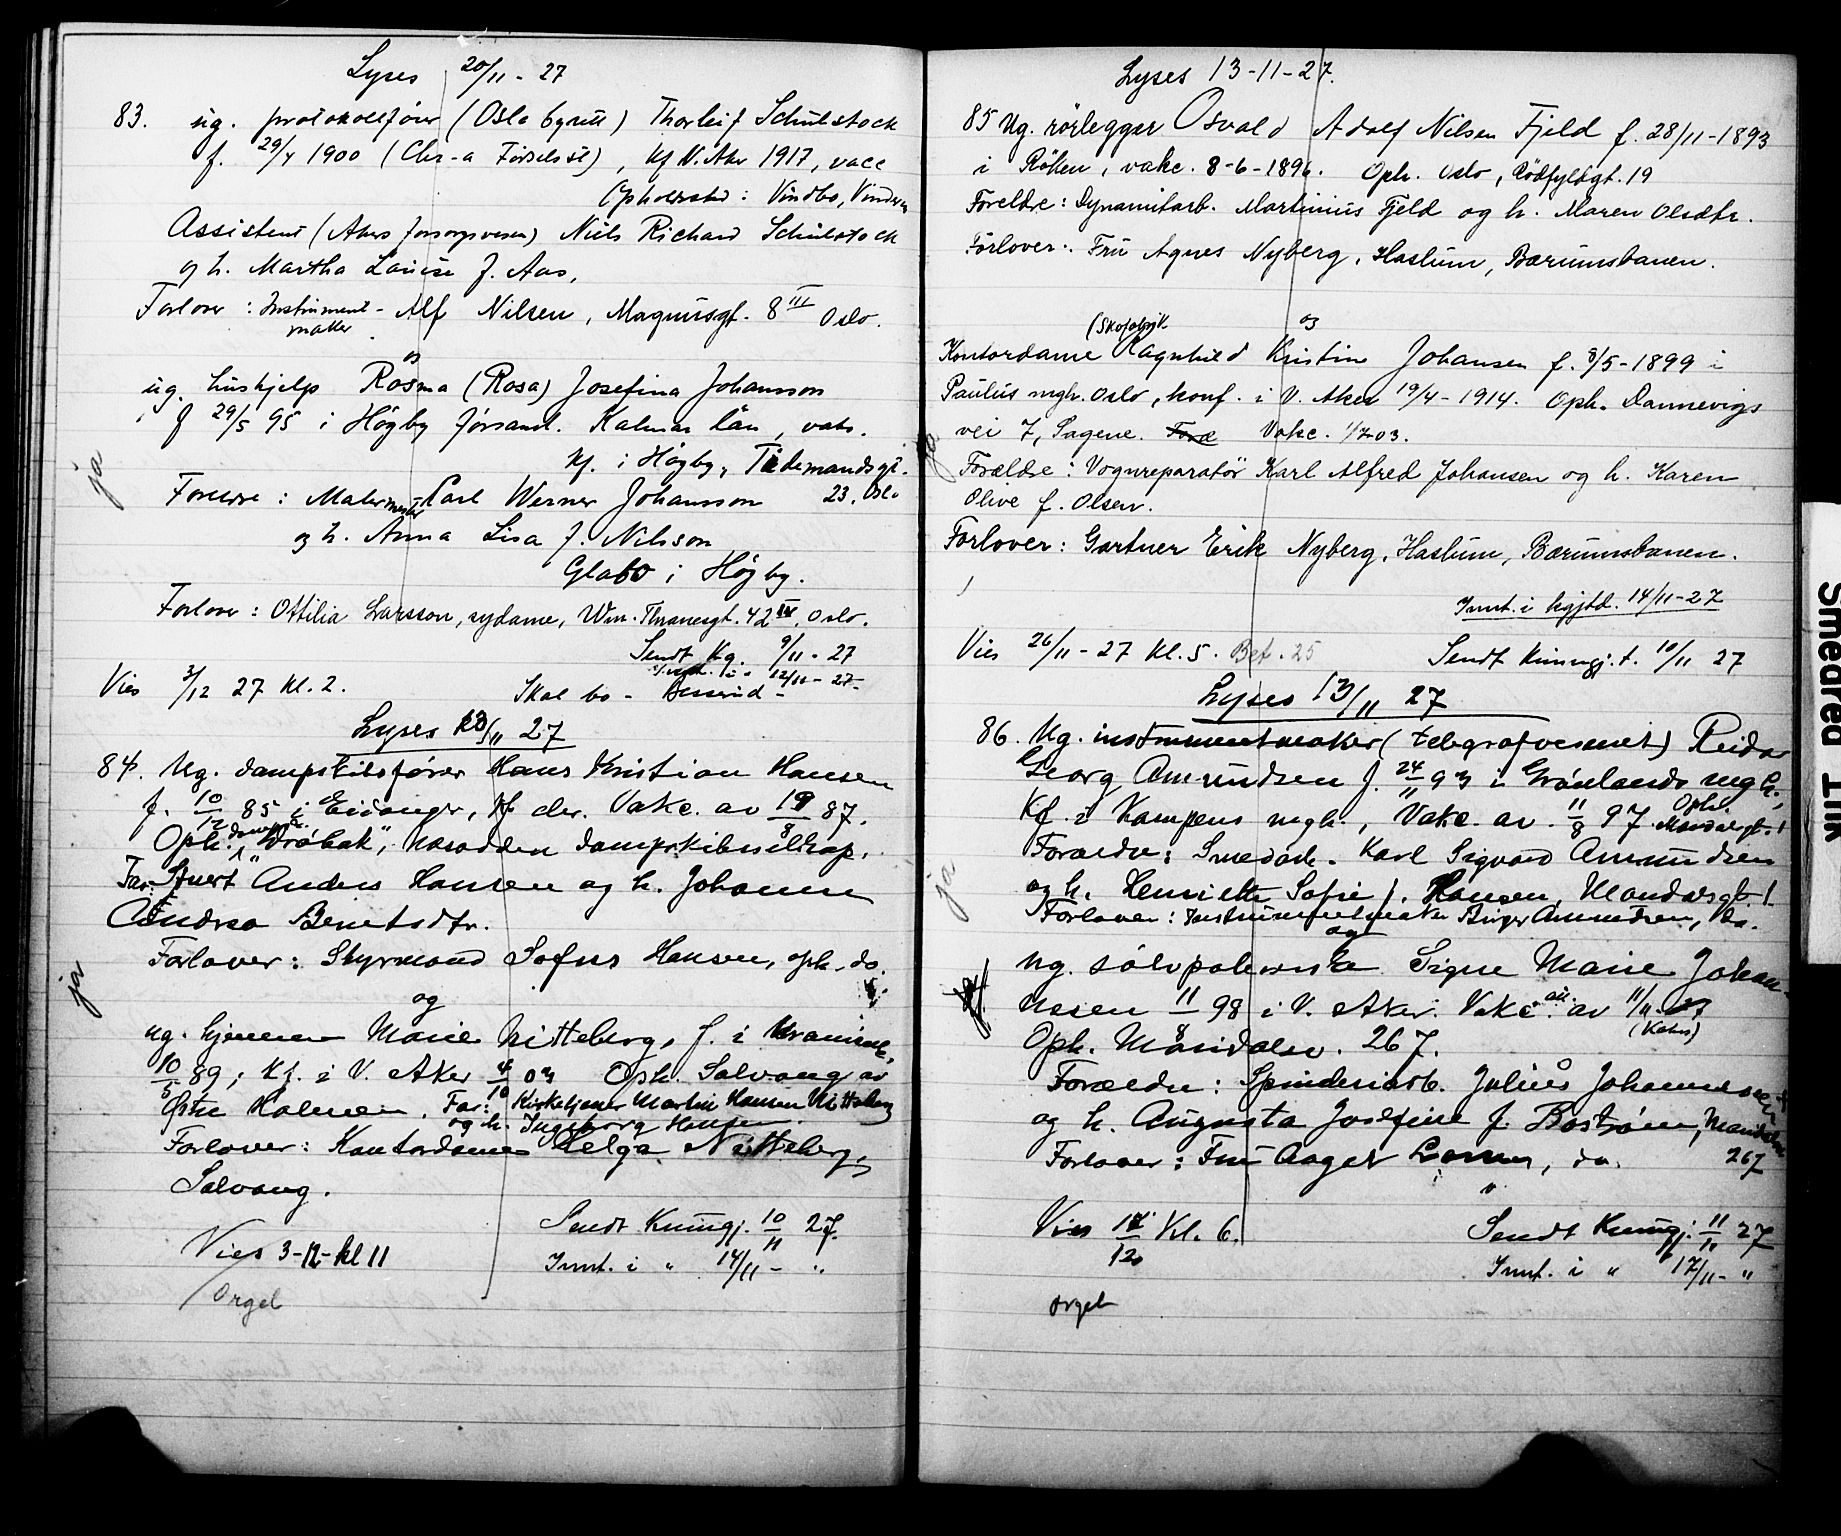 Lyses 20/11 - 27
83. ug. protokollfører (Oslo byrett) Thorleif Schulstock
f. 29/4 1900 (Chr-a Fødselsst), kf V. Aker 1917, vacc
Opholdssted: Vindbo, Vinderen
Assistent (Akers forsorgsvesen) Niels Richard Schulstock
og h. Martha Louise f. Aas,
Forlover: Instrument- Alf Nilsen, Magnusgt. 8 III Oslo.
maker
og
ug. hushjelp Rosma (Rosa) Josefina Johansson
f 29/5 95 i Högby församl. Kalmar län, vakc.
kf. i Högby, Tidemandsgt.
ja
Foreldre: Malermester Carl Werner Johansson 23, Oslo
og h. Anna Lisa f. Nilsson
Glabo i Högby.
Forlover: Ottilia Larsson, sydame, Wm. Thranesgt. 42 IV, Oslo.
Sendt Kg. 9/11 - 27
12/11 - 27
Vies 3/12 27 kl. 2. Skal bo - Besserud -
Lyses 13/11 27
84. Ug. dampskibsfører Hans Kristian Hansen
f. 10/12 85 i Eidanger, kf der. Vakc. av 19/8 87.
Oph. dampsk. "Drøbak", Narodden dampskibsselskap.
Far: Stuert Anders Hansen og h. Johanne
Andrea Berntsdtr.
ja
Forlover: Styrmand Sofus Hansen, oph. do.
og
ug. hjemme Marie Nitteberg, f. i
10/5 89; kf. i V. Aker 4/10 03 Oph. Solvang av
Østre Holmen. Far: Kirketjener Martin Hansen Nitteberg
og h. Ingeborg Hansen.
Forlover: Kontordame Helga Nitteberg,
Solvang.
Sendt Kunngj. 10/11 27.
Vies 3-12- kl 11
Innt. i " 14/11 - "
Orgel
Lyses 13-11-27.
85 Ug. rørlegger Osvald Adolf Nilsen Fjeld f. 28/11-1893
i Røken, vakc. 8-6-1896. Oph. Oslo, Rødfyldgt. 19
Foreldre: Dynamitarb. Martinius Fjeld og h. Maren Olsdtr.
Forlover: Fru Agnes Nyberg, Haslum, Bærumsbanen.
(Skofabrik og
Kontordame Ragnhild Kristine Johansen f. 8/5-1899 i
Paulus mgh. Oslo, konf. i V. Aker 19/4-1914. Oph. Dannevigs
vei 7, Sagene. Foræ Vakc. 1/7 03.
ja
Forældre: Vognreparatør Karl Alfred Johansen og h. Karen
Olive f. Olsen.
Forlover: Gartner Erik Nyberg, Haslum, Bærumsbanen.
Innt. i kgjbl. 14/11-27
Vies 26/11-27 kl. 5. Bet. 25 Sendt kunngj. t. 10/11 27
Lyses 13/11 27
86. Ug. instrumentmaker (telegrafvesenet) Reidar
Georg Amundsen f. 24/11 93 i Grønlands mgh.,
Kf. i Kampens mgh., Vakc. av 11/8 97 Oph. Mandalsgt. 1
Forældre: Smedarb. Karl Sigvard Amundsen
ja
og h. Henriette Sofie f. Hansen, Mandalsgt. 1.
Forlover: Instrumentmaker Birger Amundsen, do.
og
ug. sølvpolererske Signe Marie Johan-
nssen 11/8 98 i V. Aker. Vakc. att. av 11/11 27
(Kahrs)
Oph. Maridalsv. 267.
Forældre: Spinderiarb. Julius Johannessen
og h. Augusta Josefine f. Boström, Maridalsv.
267
Forlover: Fru Aagot , do.
"
Vies 17/12 Kl. 6. Sendt Kunngj: 11/11 27
Innt. i " 17/11 - "
orgel
Smedred Tilik